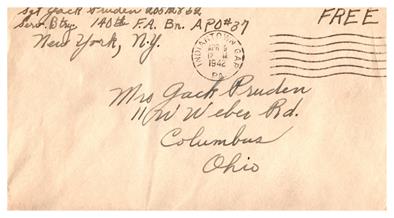 Sgt Jack Pruden
Serv. Btry. 140th F.A. Bn. APO#37
New York, N.Y.
FREE
INDIANTOWN GAP
APR
1942
PA.
Mrs Jack Pruden
11 W Weber Rd.
Columbus
Ohio